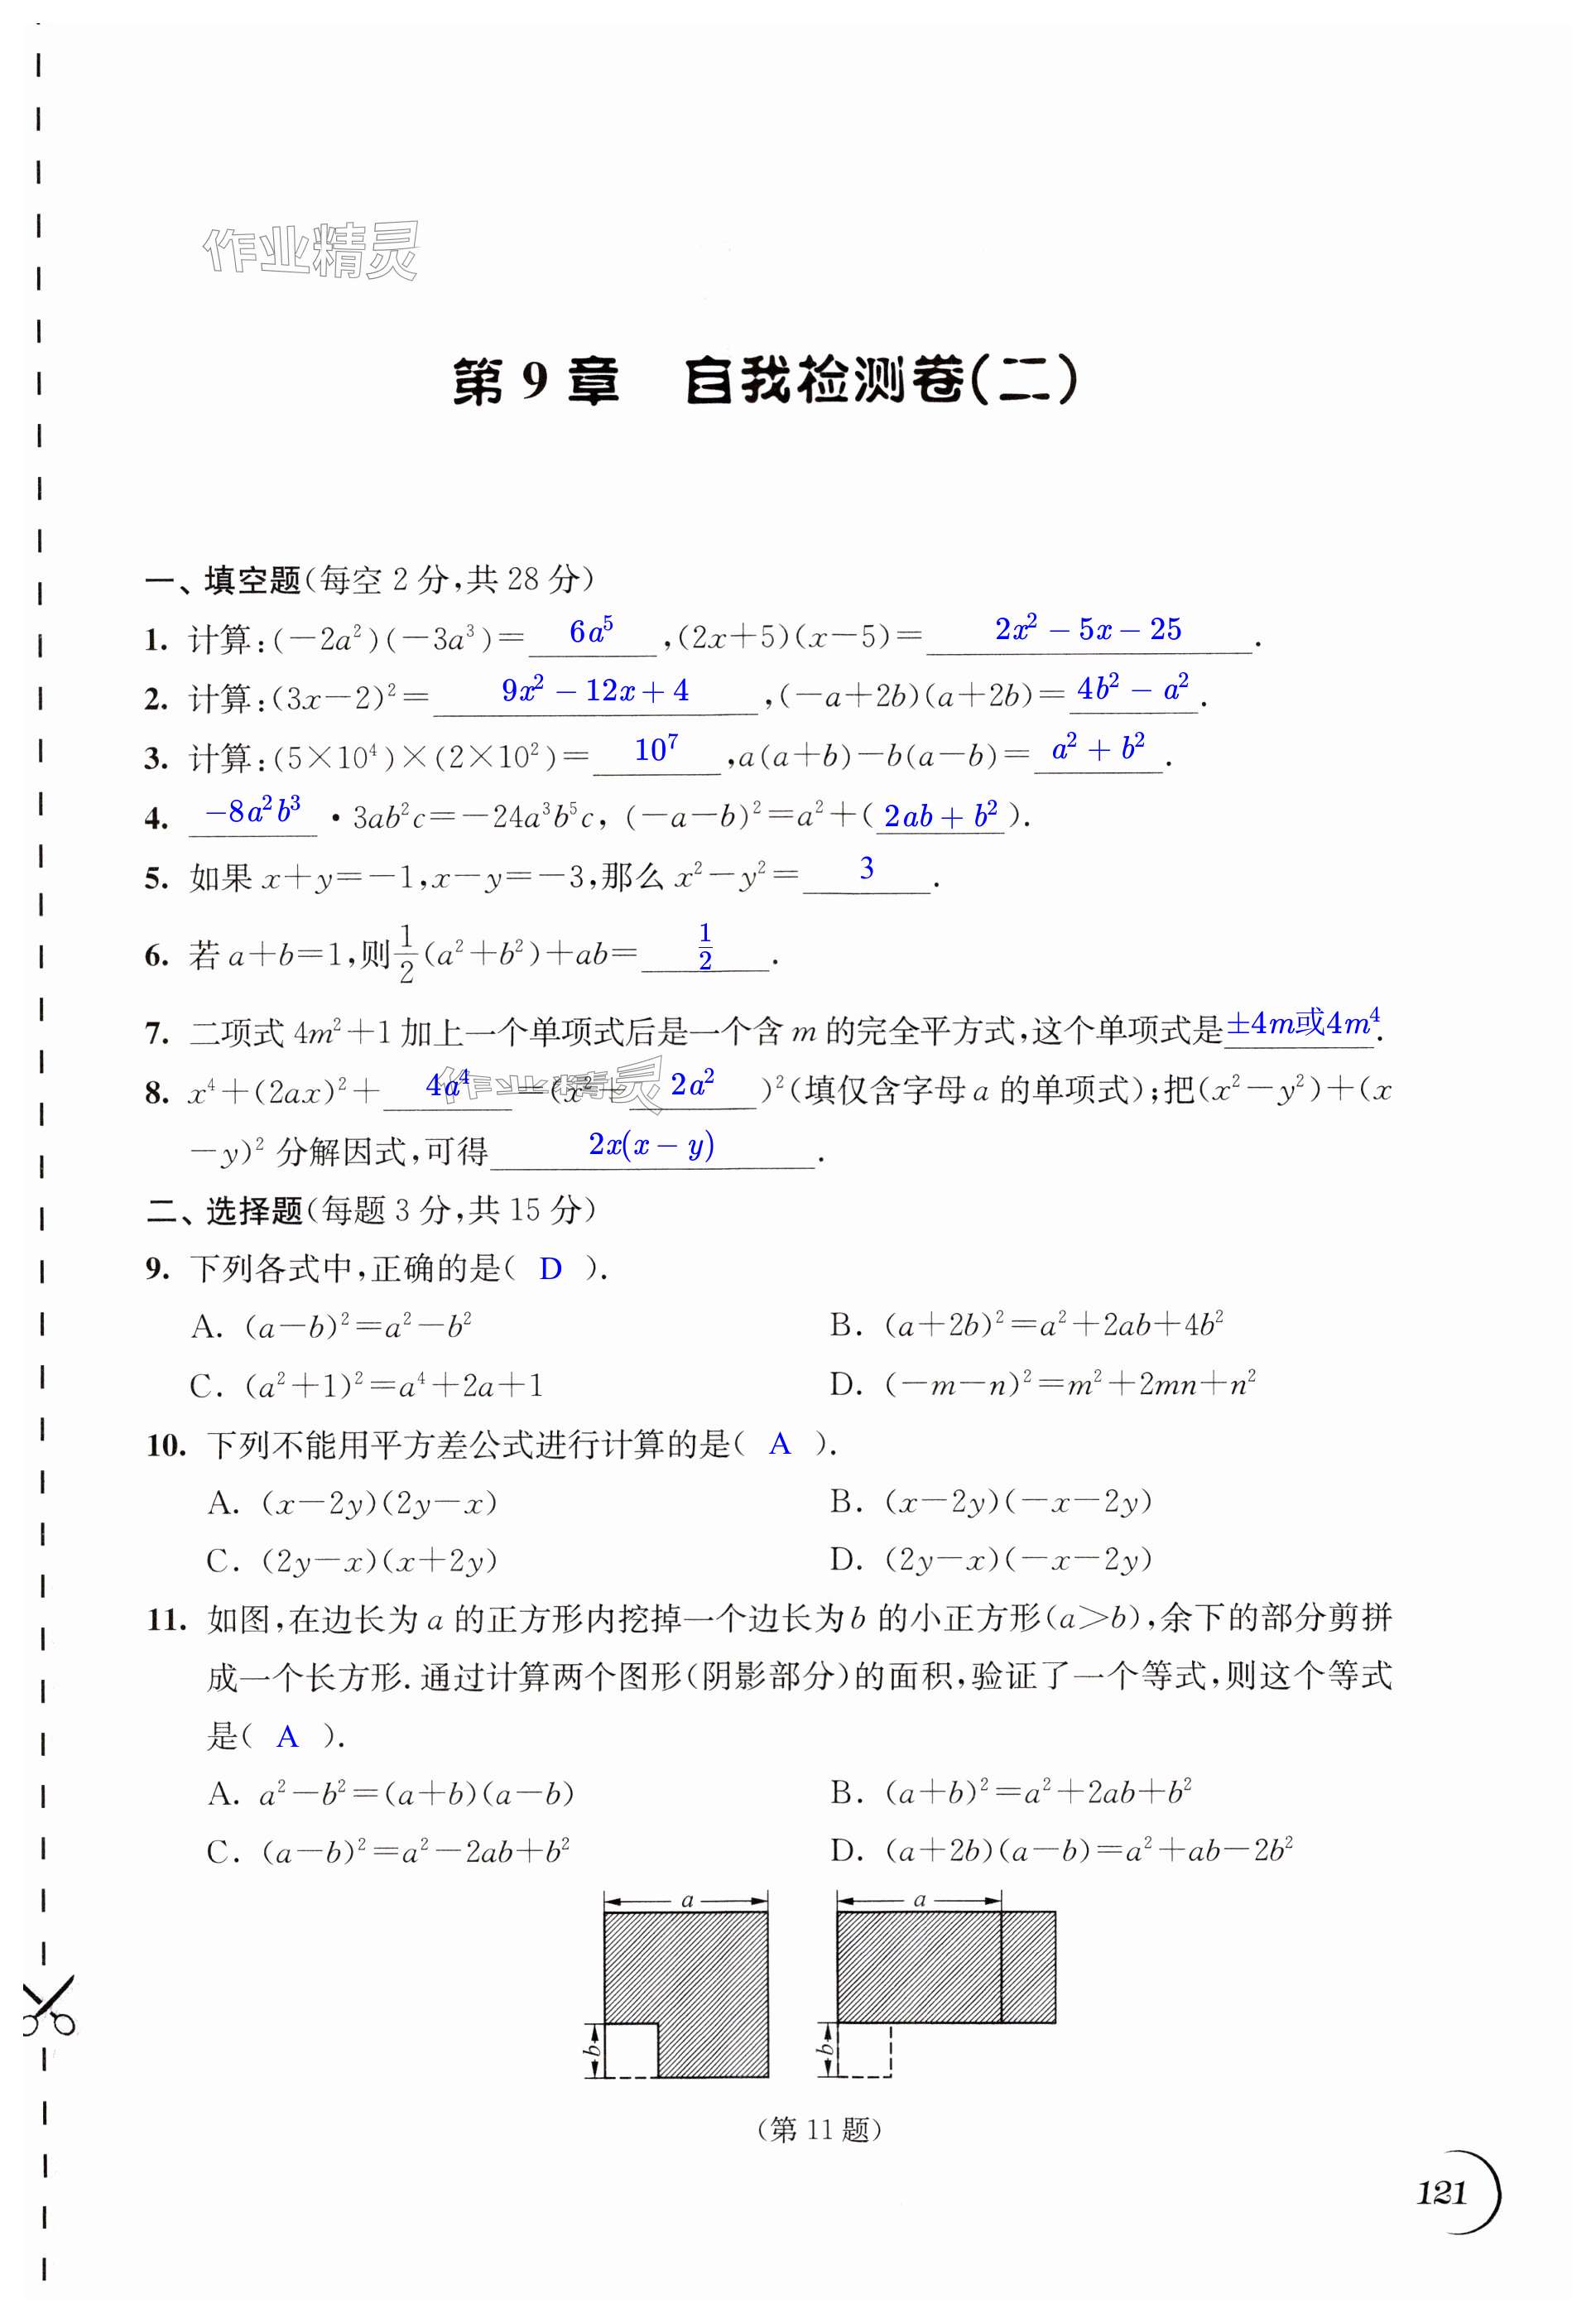 作业精灵
第9章 自我检测卷(二)
一、填空题(每空2分,共28分)
1. 计算:(-2a²)(-3a³)= 6a⁵ ,(2x+5)(x-5)= 2x²-5x-25 .
2. 计算:(3x-2)²= 9x²-12x+4 ,(-a+2b)(a+2b)= 4b²-a² .
3. 计算:(5×10⁴)×(2×10²)= 10⁷ ,a(a+b)-b(a-b)= a²+b² .
4. -8a²b³ ·3ab²c=-24a³b⁵c, (-a-b)²=a²+( 2ab+b² ).
5. 如果x+y=-1,x-y=-3,那么x²-y²= 3 .
6. 若a+b=1,则1/2(a²+b²)+ab= 1/2 .
7. 二项式4m²+1加上一个单项式后是一个含m的完全平方式,这个单项式是 ±4m或4m⁴ .
8. x⁴+(2ax)²+ 4a⁴ =(x²+ 2a² )²(填仅含字母a的单项式);把(x²-y²)+(x
作业精灵
-y)²分解因式,可得 2x(x-y) .
二、选择题(每题3分,共15分)
9. 下列各式中,正确的是( D ).
A. (a-b)²=a²-b² B. (a+2b)²=a²+2ab+4b²
C. (a²+1)²=a⁴+2a+1 D. (-m-n)²=m²+2mn+n²
10. 下列不能用平方差公式进行计算的是( A ).
A. (x-2y)(2y-x) B. (x-2y)(-x-2y)
C. (2y-x)(x+2y) D. (2y-x)(-x-2y)
11. 如图,在边长为a的正方形内挖掉一个边长为b的小正方形(a>b),余下的部分剪拼
成一个长方形.通过计算两个图形(阴影部分)的面积,验证了一个等式,则这个等式
是( A ).
A. a²-b²=(a+b)(a-b) B. (a+b)²=a²+2ab+b²
C. (a-b)²=a²-2ab+b² D. (a+2b)(a-b)=a²+ab-2b²
a a
b b
(第11题)
121